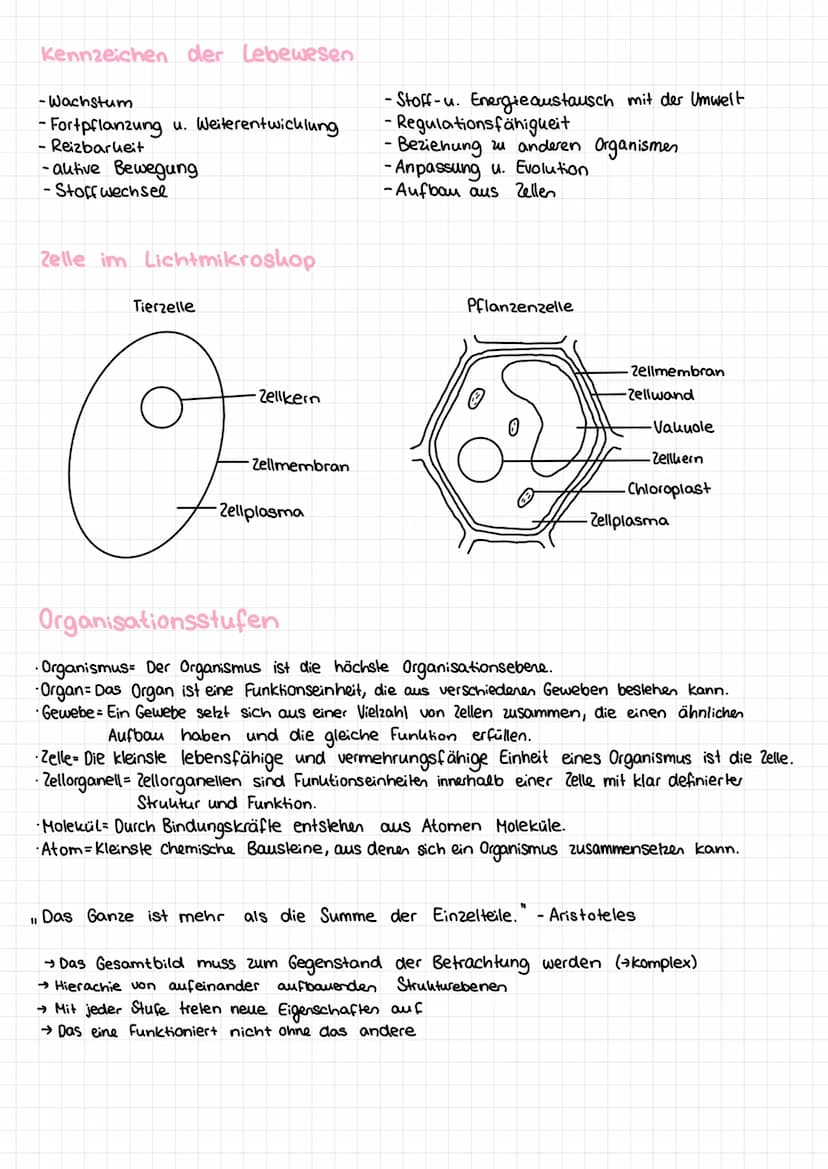 Kennzeichen der Lebewesen
- Wachstum
- Fortpflanzung u. Weiterentwicklung
- Reizbarkeit
- aktive Bewegung
- Stoffwechsel
- Stoff- u. Energieaustausch mit der Umwelt
- Regulationsfähigkeit
- Beziehung zu anderen Organismen
- Anpassung u. Evolution
- Aufbau aus Zellen
Zelle im Lichtmikroskop
Tierzelle
Zellkern
Zellmembran
Zellplasma
Pflanzenzelle
Zellmembran
Zellwand
Vakuole
Zellkern
Chloroplast
Zellplasma
Organisationsstufen
· Organismus= Der Organismus ist die höchste Organisationsebene.
· Organ= Das Organ ist eine Funktionseinheit, die aus verschiedenen Geweben bestehen kann.
· Gewebe= Ein Gewebe setzt sich aus einer Vielzahl von Zellen zusammen, die einen ähnlichen
Aufbau haben und die gleiche Funktion erfüllen.
· Zelle= Die kleinste lebensfähige und vermehrungsfähige Einheit eines Organismus ist die Zelle.
· Zellorganell= Zellorganellen sind Funktionseinheiten innerhalb einer Zelle mit klar definierter
Struktur und Funktion.
· Molekül= Durch Bindungskräfte entstehen aus Atomen Moleküle.
· Atom= Kleinste chemische Bausteine, aus denen sich ein Organismus zusammensetzen kann.
„Das Ganze ist mehr als die Summe der Einzelteile." - Aristoteles
→ Das Gesamtbild muss zum Gegenstand der Betrachtung werden (→komplex)
→ Hierachie von aufeinander aufbauenden Strukturebenen
→ Mit jeder Stufe treten neue Eigenschaften auf
→ Das eine Funktioniert nicht ohne das andere